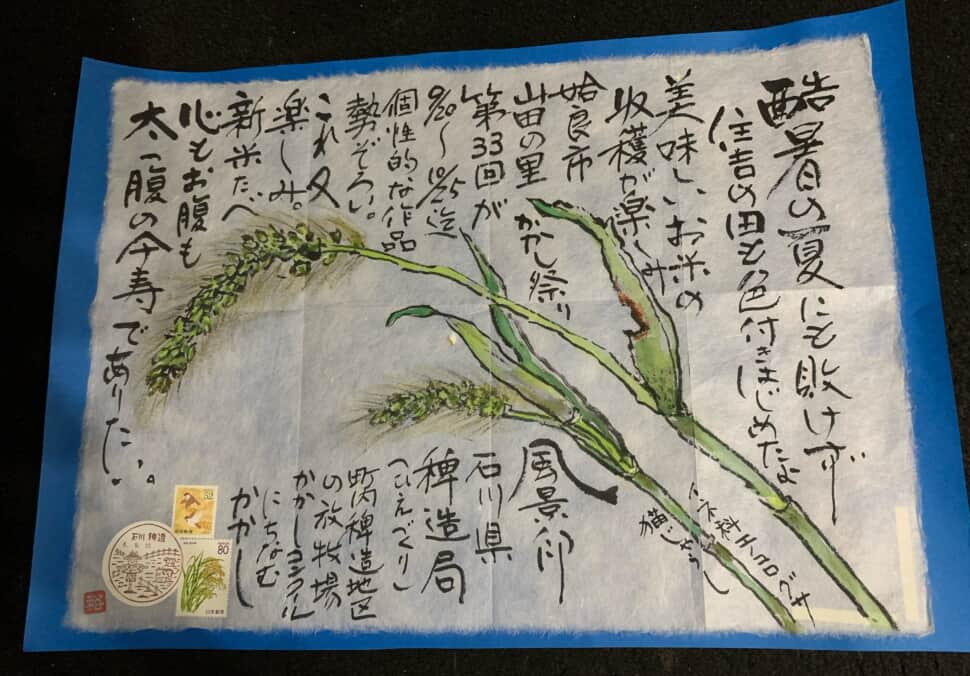 酷暑の夏にも敗けず
住吉の田も色付きはじめたよ
美味しいお米の
収穫が楽しみ
姶良市
山田の里
かかし祭り
第33回が
9/20〜10/25迄
個性的な作品
勢ぞろい。
これ又
楽しみ。
新米たべ
心もお腹も
太っ腹の今寿でありたい。
イネ科エノコログサ
猫じゃらし
風景印
石川県
稗造局
(ひえづくり)
町内稗造地区
の放牧場
かかしコンクール
にちなむ
かかし
石川 稗造
80
日本郵便